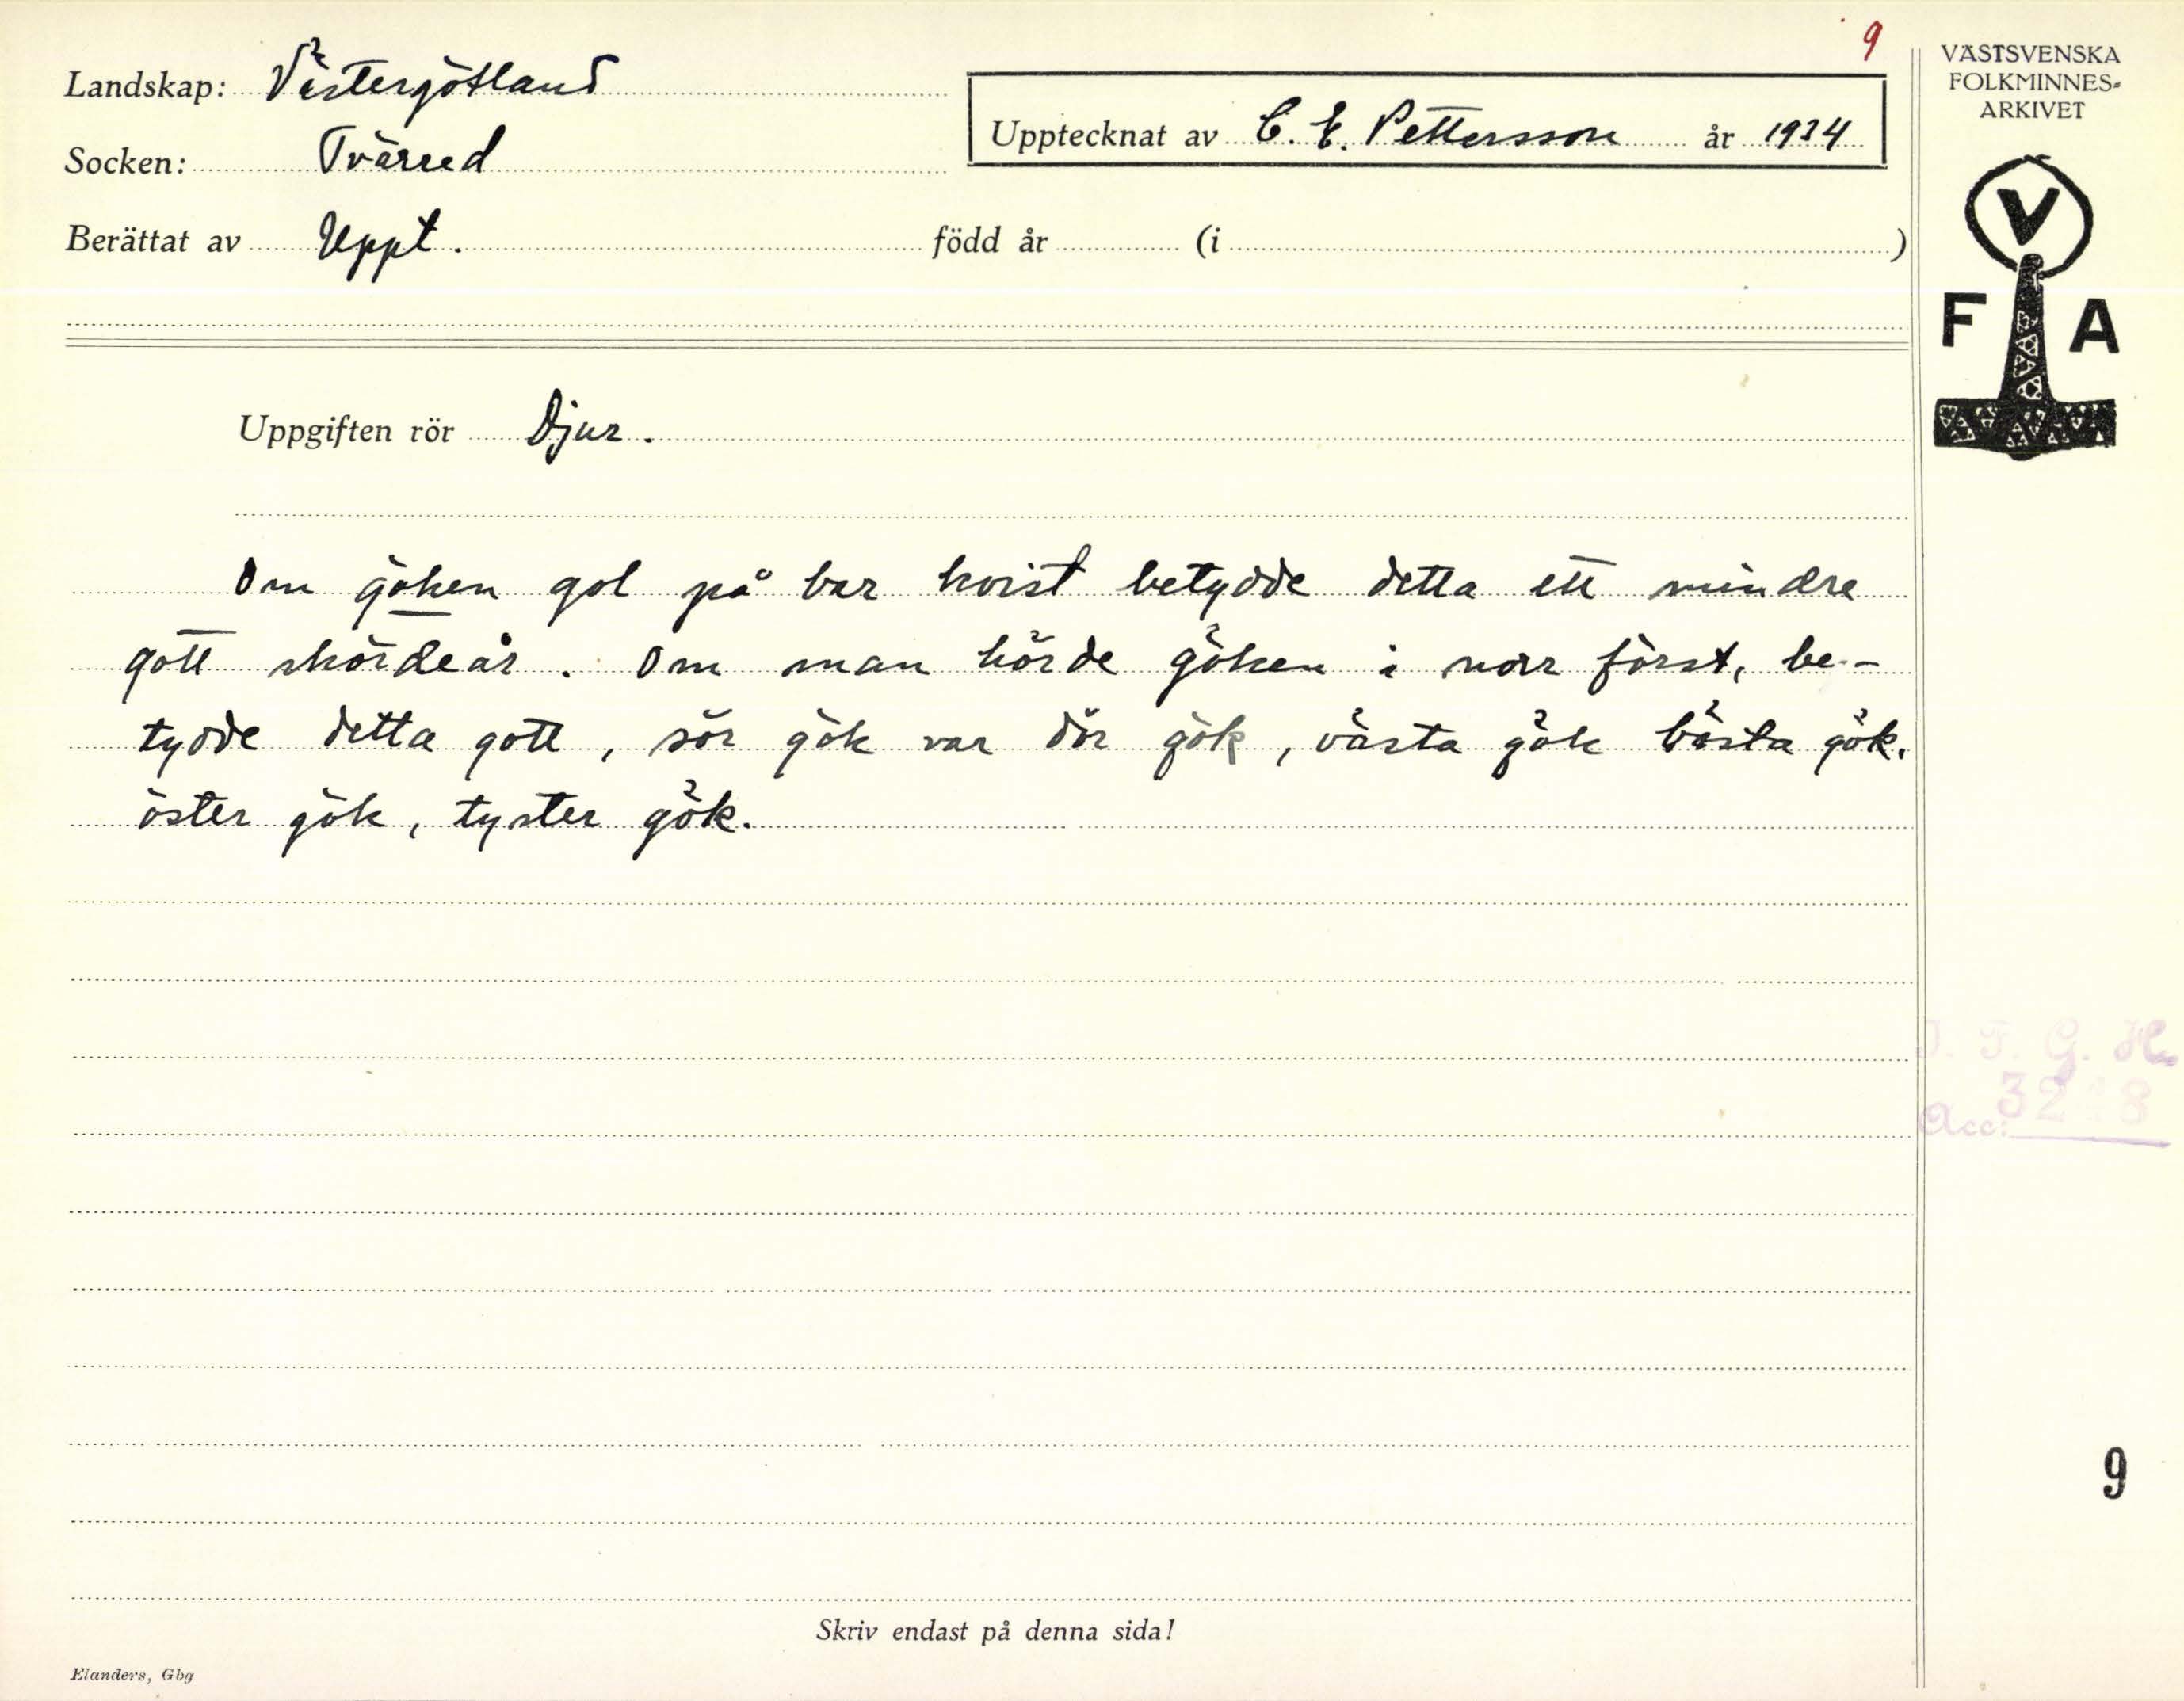 9
Landskap: Västergötland
Socken: Tvärred
Upptecknat av C. E. Pettersson år 1934
Berättat av Uppt. född år (i )
VÄSTSVENSKA
FOLKMINNES-
ARKIVET
V
F A
Uppgiften rör Djur.
Om göken gol på bar kvist betydde detta ett mindre
gott skördeår. Om man hörde göken i norr först, be-
tydde detta gott, sör gök var dör gök, västa gök bästa gök.
öster gök, tyster gök.
G. H.
Acc:
9
Skriv endast på denna sida!
Elanders, Gbg